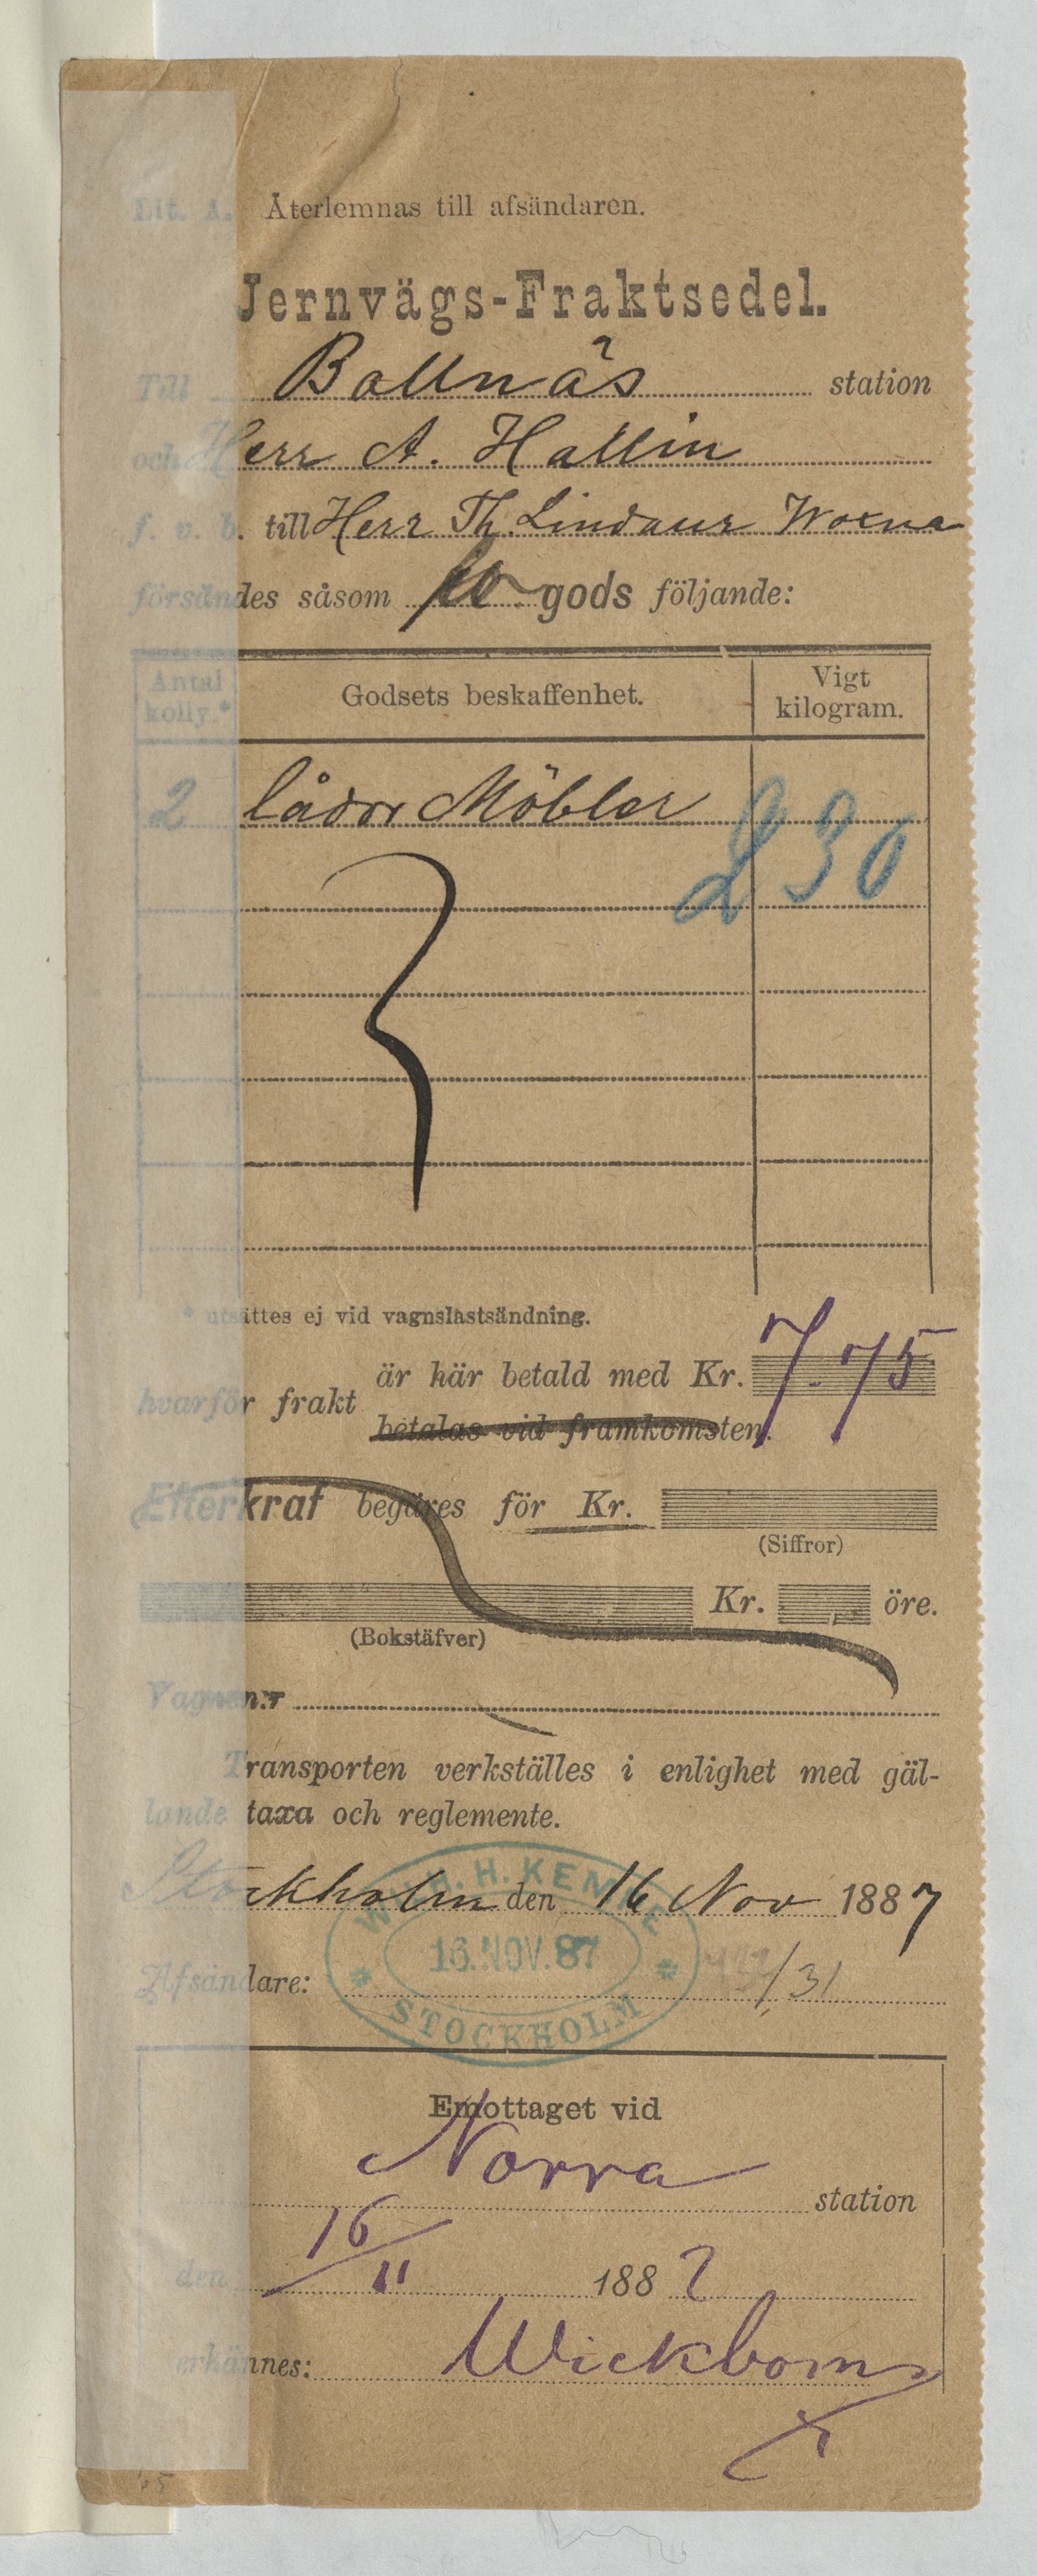 Lit. A. Återlemnas till afsändaren.
Jernvägs-Fraktsedel.
Till Bollnäs station
och Herr A. Hallin
f. v. b. till Herr Th. Lindaur Woxna
försändes såsom gods följande:
Antal kolly.* Godsets beskaffenhet. Vigt kilogram.
2 lådor Möbler 230
* utsättes ej vid vagnslastsändning.
är här betald med Kr. 7-75
hvarför frakt
betalas vid framkomsten.
Efterkraf begäres för Kr.
(Siffror)
Kr. öre.
(Bokstäfver)
Vagnen:r
Transporten verkställes i enlighet med gäl-
lande taxa och reglemente.
Stockholm den 16 Nov 1887
WILH. H. KEMPE
16. NOV. 87
STOCKHOLM
Afsändare: /31
Emottaget vid
Norra station
den 16/11 1887
erkännes: Wickbom